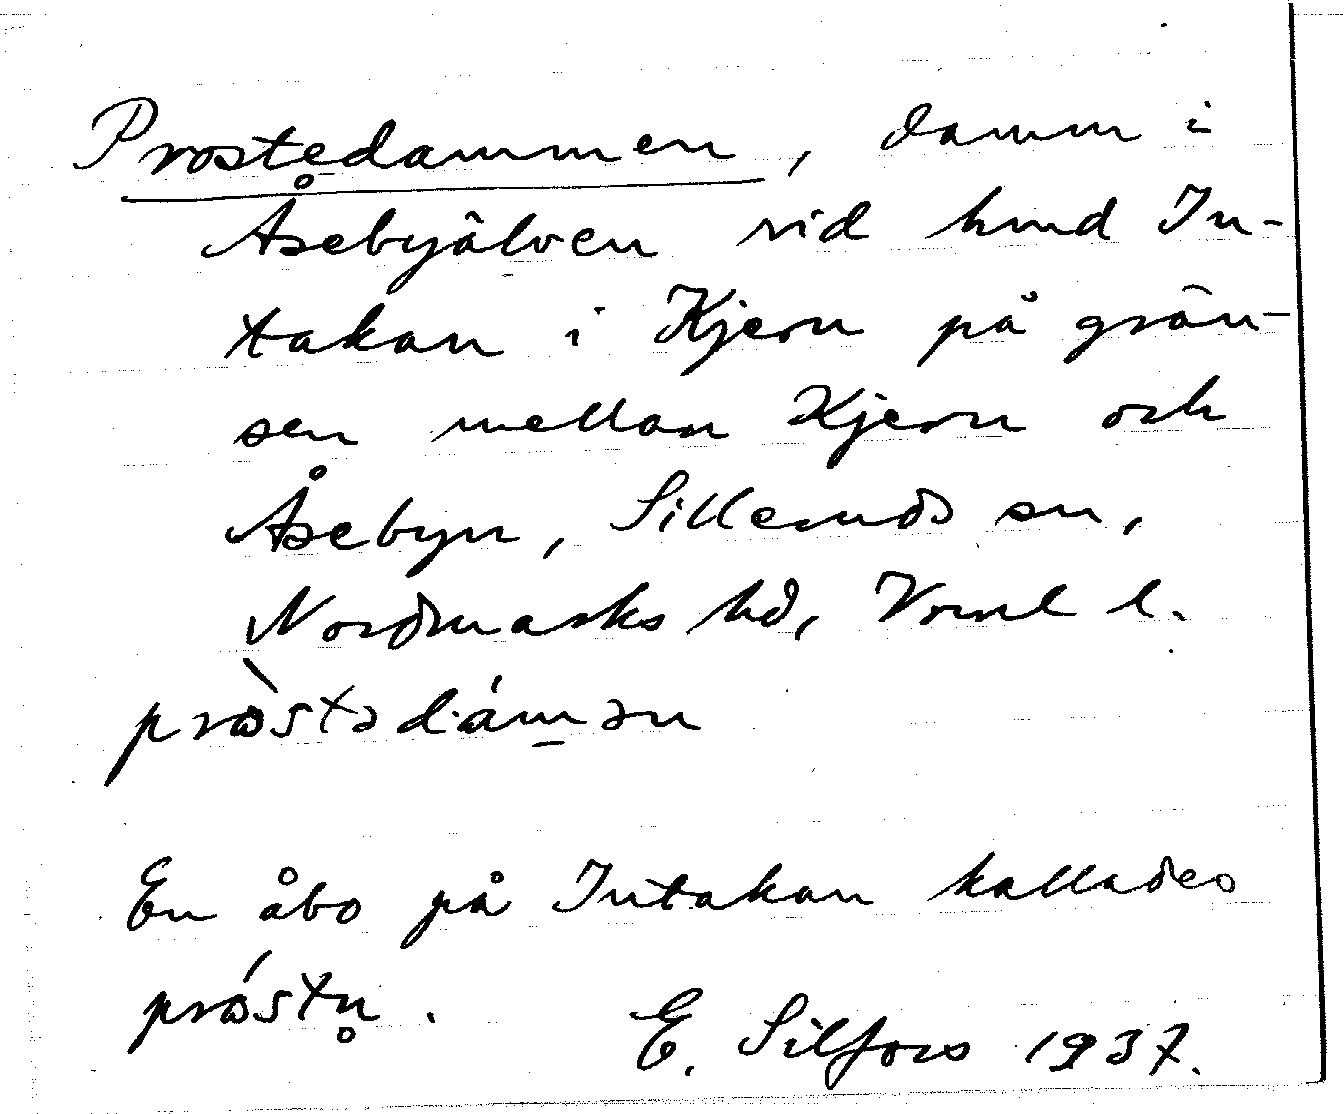 Prostedammen, damm i
Åsebyälven vid hmd In-
takan i Kjern på grän-
sen mellan Kjern och
Åsebyn, Silleruds sn,
Nordmarks hd, Vrml l.
En åbo på Intakan kallades
E. Silfors 1937.